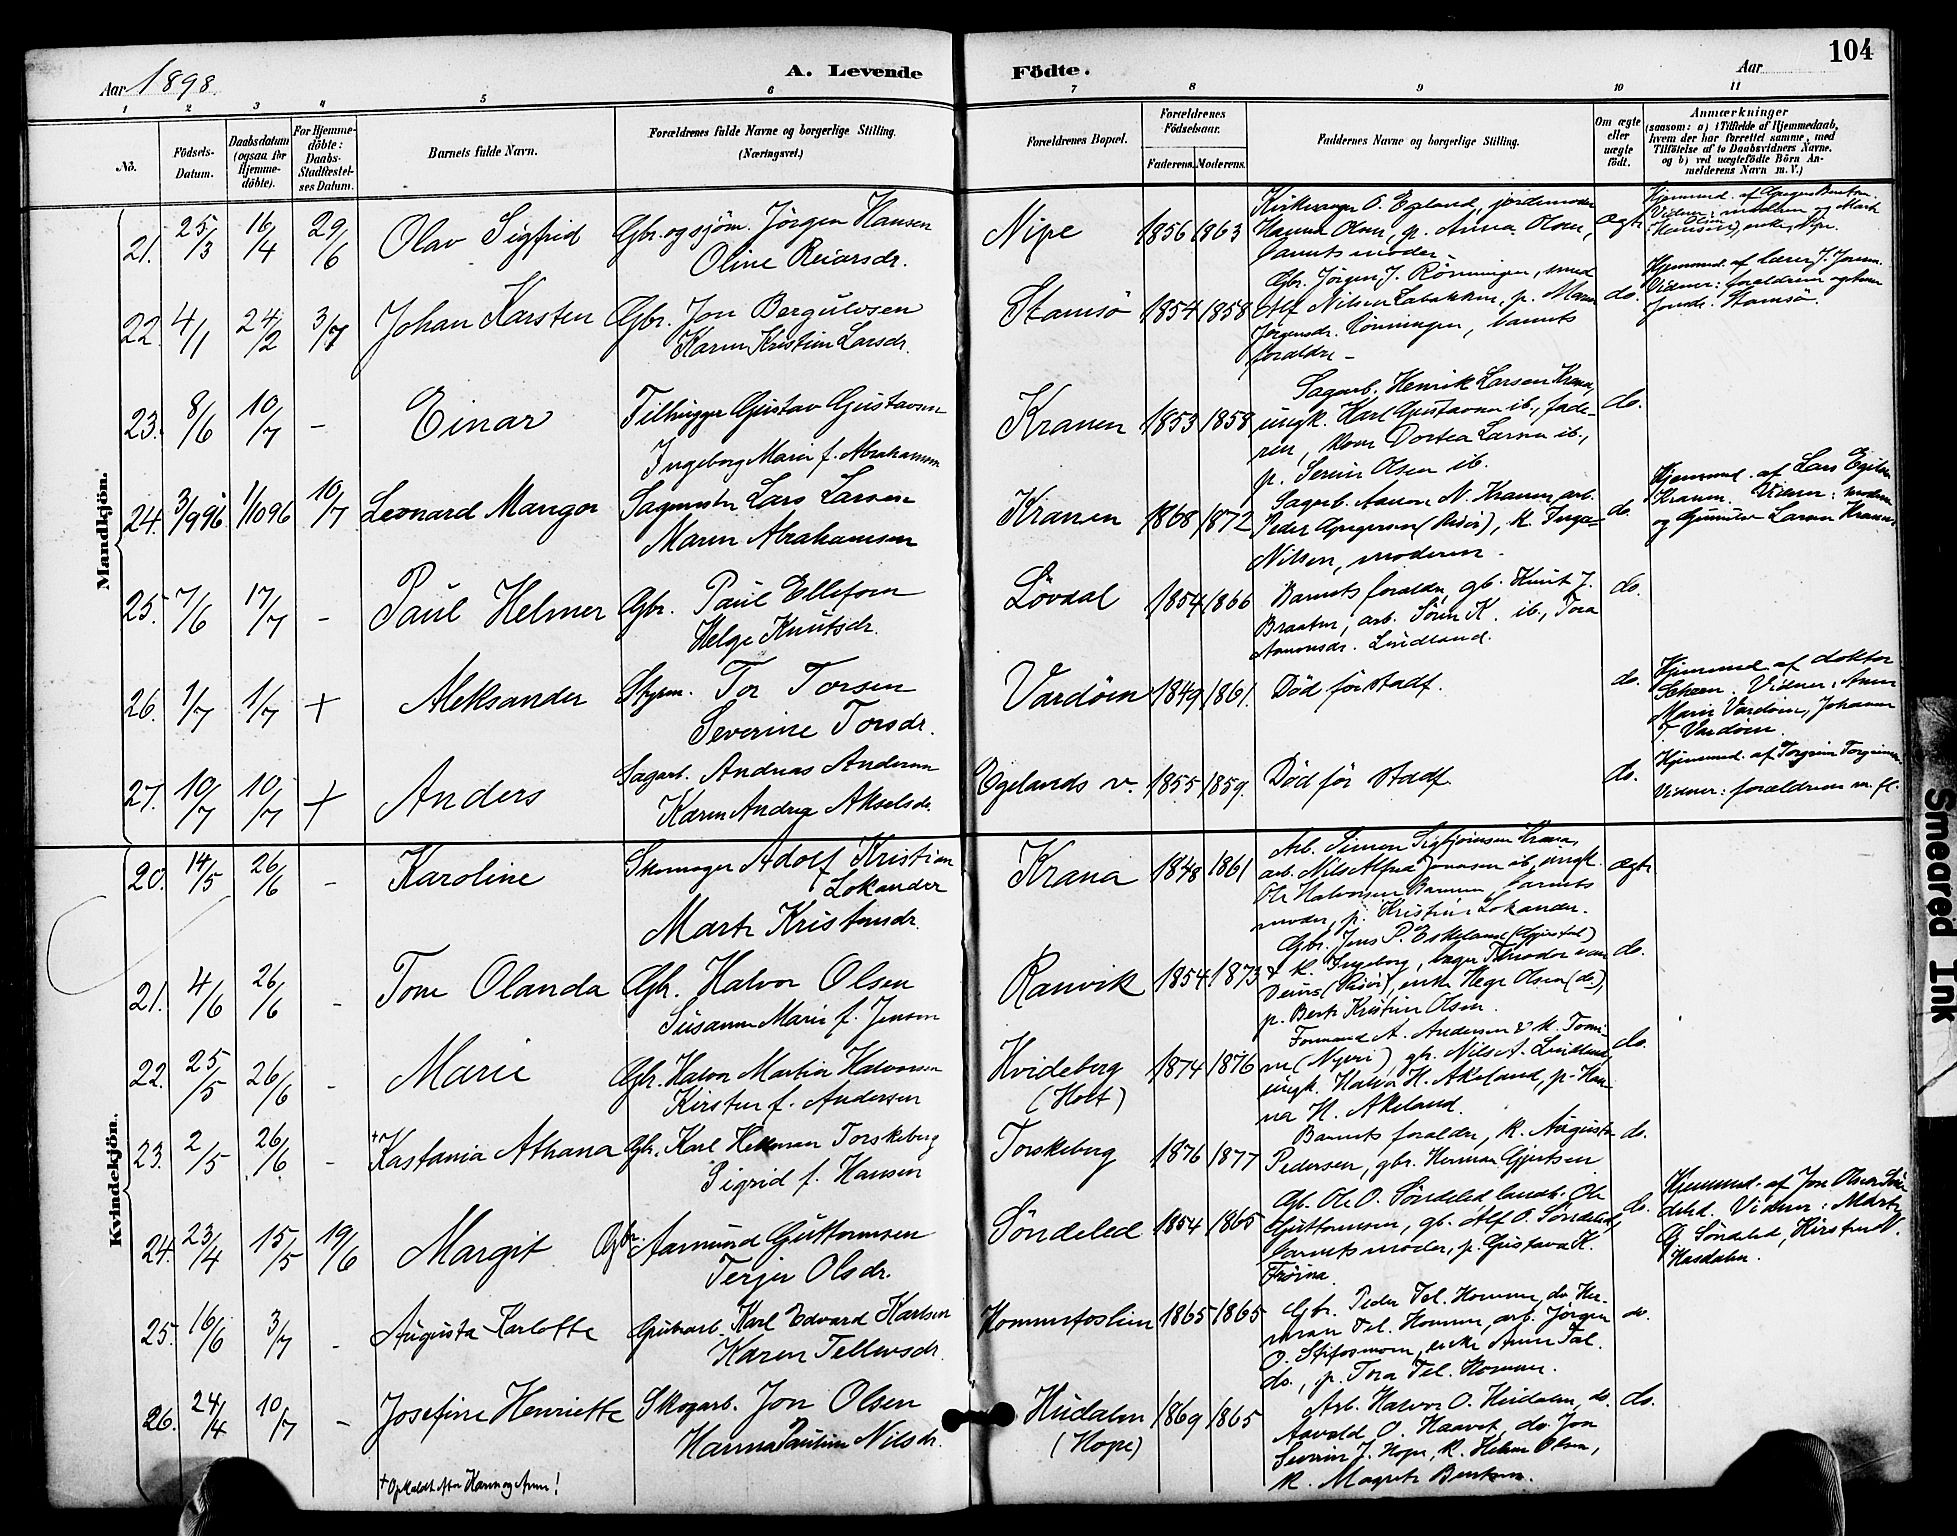 104
Aar 1898.
A. Levende Födte.
Aar
1 2 3 4 5 6 7 8 9 10 11
No.
Födsels-Datum.
Daabsdatum (ogsaa for Hjemme-döbte).
For Hjemme-döbte: Daabs-Stadfæstel-ses Datum.
Barnets fulde Navn.
Forældrenes fulde Navne og borgerlige Stilling. (Næringsvei.)
Forældrenes Bopæl.
Forældrenes Födselsaar.
Faderens. Moderens.
Faddernes Navne og borgerlige Stilling.
Om ægte eller uægte födt.
Anmærkninger (saasom: a) i Tilfælde af Hjemmedaab, hvem der har forrettet samme, med Tilföielse af to Daabsvidners Navne, og b) ved uægtefödte Börn An-melderens Navn m. V.)
Mandkjön.
21. 25/3 16/4 29/6 Olav Sigfrid Gbr. og sjöm. Jörgen Hansen
Oline Reiarsdr.
Nipe 1856 1863
Kirkesanger O. Egeland, jordemoder
Hanna Olsen, p. Anna Olsen,
barnets moder
ægte
22. 4/1 24/2 3/7 Johan Karsten Gbr. Jon Bergulvsen
Karen Kristine Larsdr.
Stamsö 1854 1858
Gbr. Jörgen J. Rönningen, smed
Alf Nilsen Labakken, p. Maren
Jörgensdr. Rönningen, barnets
foraldre -
do.
Vidner: foraldrene
Stamsö.
23. 8/6 10/7 - Einar Tilhugger Gustav Gustavsen
Ingeborg Marie f. Abrahamsen
Kranen 1853 1858
Sagarb. Henrik Larsen Krana,
ungk. Karl Gustavsen ib., fade-
ren, kone Dortea Larsen ib.,
p. Serine Olsen ib.
do.
24. 3/9 96 1/10 96 10/7 Leonard Mangor Sagmester Lars Larsen
Maren Abrahamsen
Kranen 1868 1872
Sagarb. Aanon N. Kranen, arb.
Peder Gregersen (Risör), k. Inga
Nilsen, moderen.
do.
Hjemmed. af Lars Egilsen
Kranen. Vidner: moderen
og Gunilde Larsen Kranen
25. 7/6 17/7 - Paul Helmer Gbr. Paul Ellefsen
Helge Knutsdr.
Lövdal 1854 1866
Barnets foraldre, gb. Knut J.
Braaten, arb. Sören K. ib., Tora
Aanonsdr. Lindland.
do.
26. 1/7 1/7 + Aleksander Styrm. Tor Torsen
Severine Torsdr.
Vardöen 1849 1861. Död för stadf. do.
Hjemmed. af doktor
Scharn. Vidner: Anne
Marie Vardöen, Johanne
T. Vardöen.
27. 10/7 10/7 + Anders Sagarb. Andreas Andersen
Karen Andrea Akselsdr.
Egelands v. 1855 1859. Död för stadf. do.
Hjemmed. af Torgrim Torgrimsen
Vidner: foraldrene m. fl.
Kvindekjön.
20. 14/5 26/6 - Karoline Skomager Adolf Kristian
Lokander
Marte Kristensdr.
Krana 1848 1861
Arb. Simon Sigbjörnsen Krana,
arb. Nils Alfred Jonassen ib, ungk.
Ole Halvorsen Barmen, barnets
moder, p. Kristine Lokander.
ægte
21. 4/6 26/6 - Tone Olanda Gbr. Halvor Olsen
Susanne Marie f. Jensen
Ranvik 1854 1873
Gbr. Jens P. Eskeland (Gjerstad)
& k. Ingeborg, bager Theodor van
Deurs (Risör), enke Hege Olsen (do),
p. Berte Kristine Olsen.
do.
22. 25/5 26/6 - Marie Gbr. Halvor Martin Halvorsen
Kirsten f. Andersen
Hvideberg
(Holt)
1874 1876
Formand A. Andersen & k. Tomi-
ne (Nyeri), gb. Nils A. Lindland,
ungk. Halvor H. Akeland, p. Han-
na H. Akeland.
do.
23. 2/5 26/6 - †Kastania Athana Gbr. Karl Herman Torskeberg
Sigrid f. Hansen
Torskeberg 1876 1877
Barnets foraldre, k. Auguste
Pedersen, gbr. Herman Gjertsen
do.
24. 23/4 15/5 19/6 Margit Gbr. Aamund Guttormsen
Terjer Olsdr.
Söndeled 1854 1865
Gb. Ole O. Söndeled, landh. Ole
Guttormsen, gb. Alf O. Söndeled,
barnets moder, p. Gustava K.
Fröina.
do.
Hjemmed. af Jon Olsen Sön-
deled. Vidner: Marte
G. Söndeled, Kirsten N.
Hasdalen.
25. 16/6 3/7 - Augusta Karlotte Grubearb. Karl Edvard Karlsen
Karen Tellevsdr.
Hommefoslien 1865 1865
Gbr. Peder Tel. Homme, do. Her-
man Tel. Homme, arb. Jörgen
O. Stifosmoen, enke Anne Tal.
do., p. Tora Tel. Homme.
do.
26. 24/4 10/7 - Josefine Henriette Skogarb. Jon Olsen
Hanna Pauline Nilsdr.
Hudalen
(Hope)
1869 1865
Arb. Halvor O. Hudalen, do.
Aavald O. Haavet, do. Jon
Severin J. Hope, k. Helene Olsen,
k. Magrete Bentsen.
do.
† Opkaldt efter Karen og Anne!
Smeared Ink